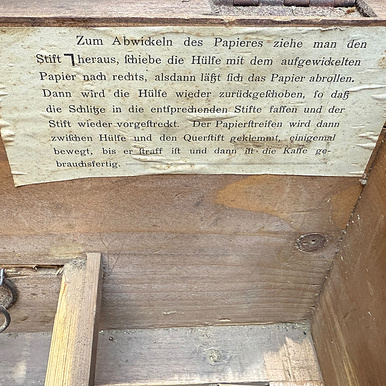 Zum Abwickeln des Papieres ziehe man den
Stift ⅂ heraus, ſchiebe die Hülſe mit dem aufgewickelten
Papier nach rechts, alsdann läßt ſich das Papier abrollen.
Dann wird die Hülſe wieder zurückgeſchoben, ſo daß
die Schlitze in die entſprechenden Stifte faſſen und der
Stift wieder vorgeſtreckt. Der Papierſtreifen wird dann
zwiſchen Hülſe und den Querſtift geklemmt, einigemal
bewegt, bis er ſtraff iſt und dann iſt die Kaſſe ge-
brauchsfertig.